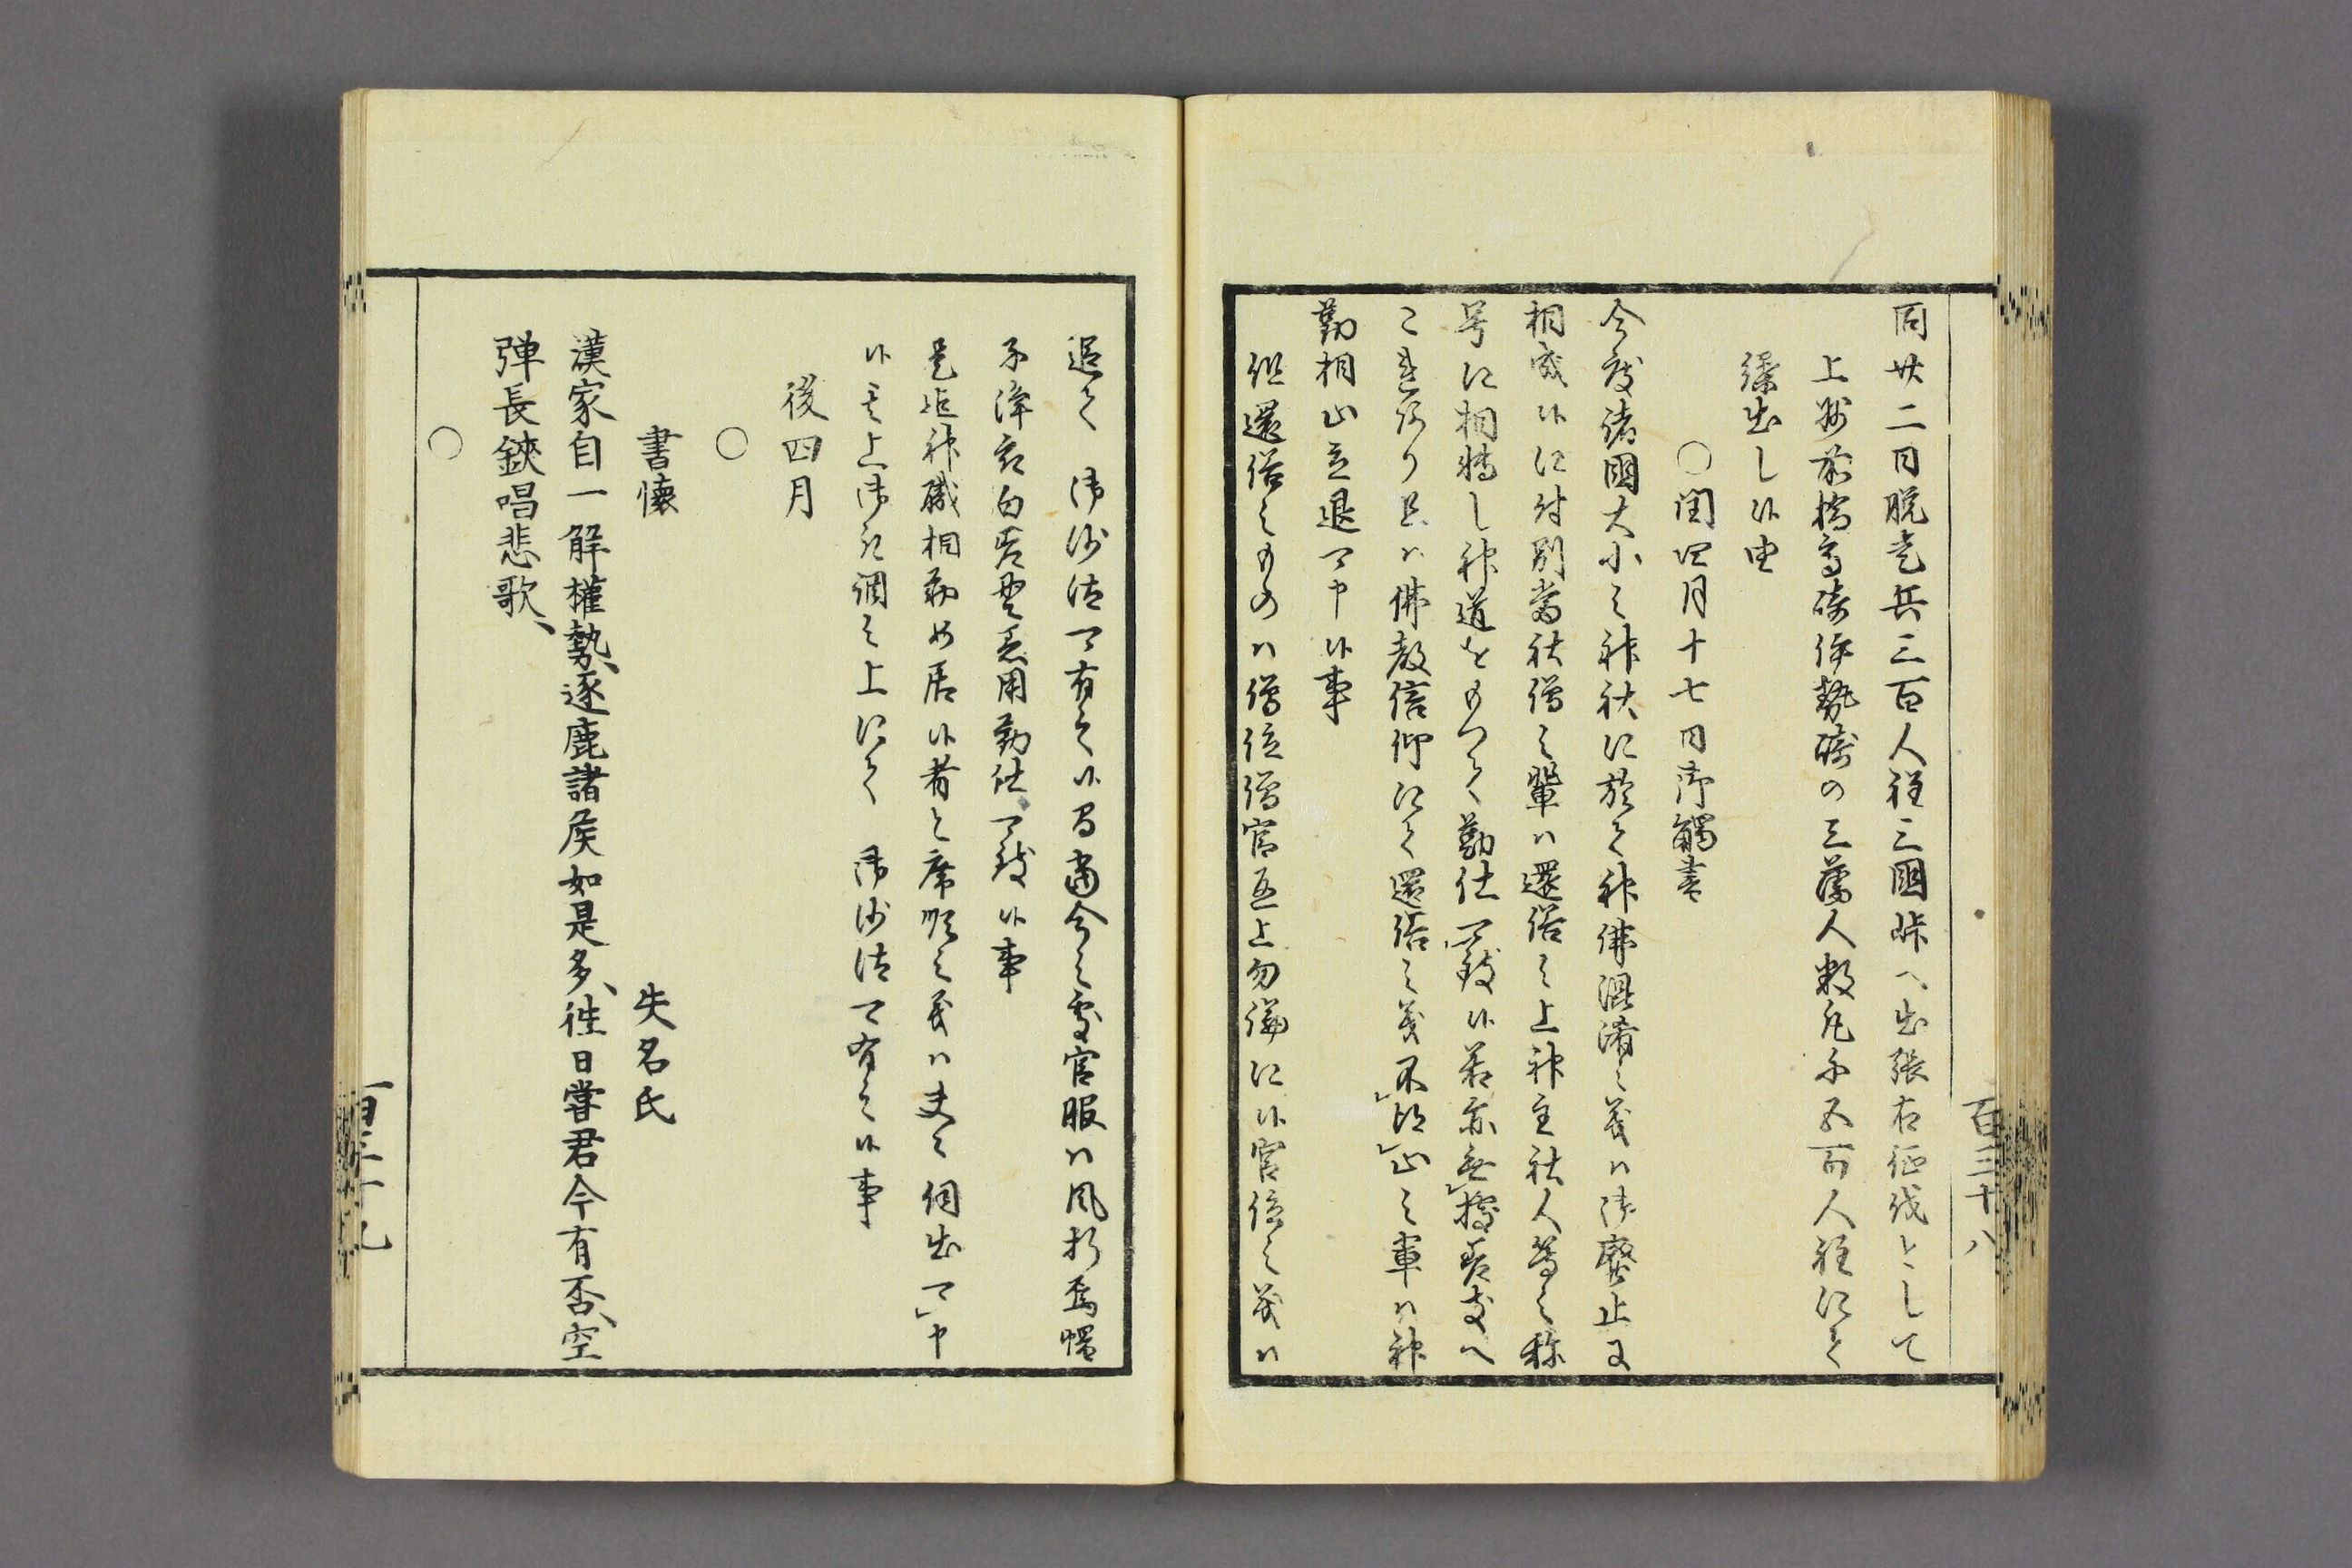 百三十八
同廿二日脱走兵三百人程三國峠へ出張右征伐として
上州前橋高崎伊勢崎の三藩人数凡千五百人程にて
繰出し候由
○閏四月十七日御觸書
今度諸國大小之神社に於て神佛混淆之義ハ御廢止に
相成候に付別當社僧之輩ハ還俗之上神主社人等之称
号に相轉し神道をもつて勤仕可致候若亦無據差支へ
これあり且ハ佛教信仰にて還俗之義不得止之輩ハ神
勤相止立退可申候事
但還俗之ものハ僧位僧官返上勿論に候官位之義ハ
追て 御沙汰可有之候間當今之處官服ハ風折烏帽
子淨衣白差貫着用勤仕可致候事
是迄神職相勤め居候者と席順之義ハ夫々伺出可申
候其上御取調之上にて 御沙汰可有之候事
後四月
○
書懐 失名氏
漢家自一解權勢、逐鹿諸侯如是多、往日嘗君今有否、空
弾長鋏唱悲歌、
○
百三十九